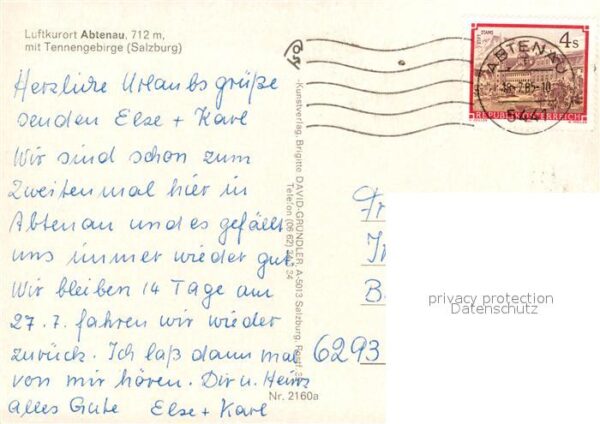 Luftkurort Abtenau, 712 m,
mit Tennengebirge (Salzburg)
Herzliche Urlaubsgrüße
senden Else + Karl
Wir sind schon zum
Zweitenmal hier in
Abtenau und es gefällt
uns immer wieder gut.
Wir bleiben 14 Tage am
27. 7. fahren wir wieder
zurück. Ich laß dann mal
von mir hören. Dir u. Heinz
alles Gute Else + Karl
Kunstverlag, Brigitte DAVID-GRÜNDLER, A-5013 Salzburg, Postf.
Telefon (06 62) 34
Nr. 2160a
STAMS
4 s
REPUBLIK ÖSTERREICH
ABTENAU
-7.85-10
544
6293
privacy protection
Datenschutz